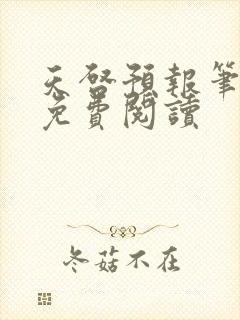 天啓預報筆
免費閱讀
冬菇不在